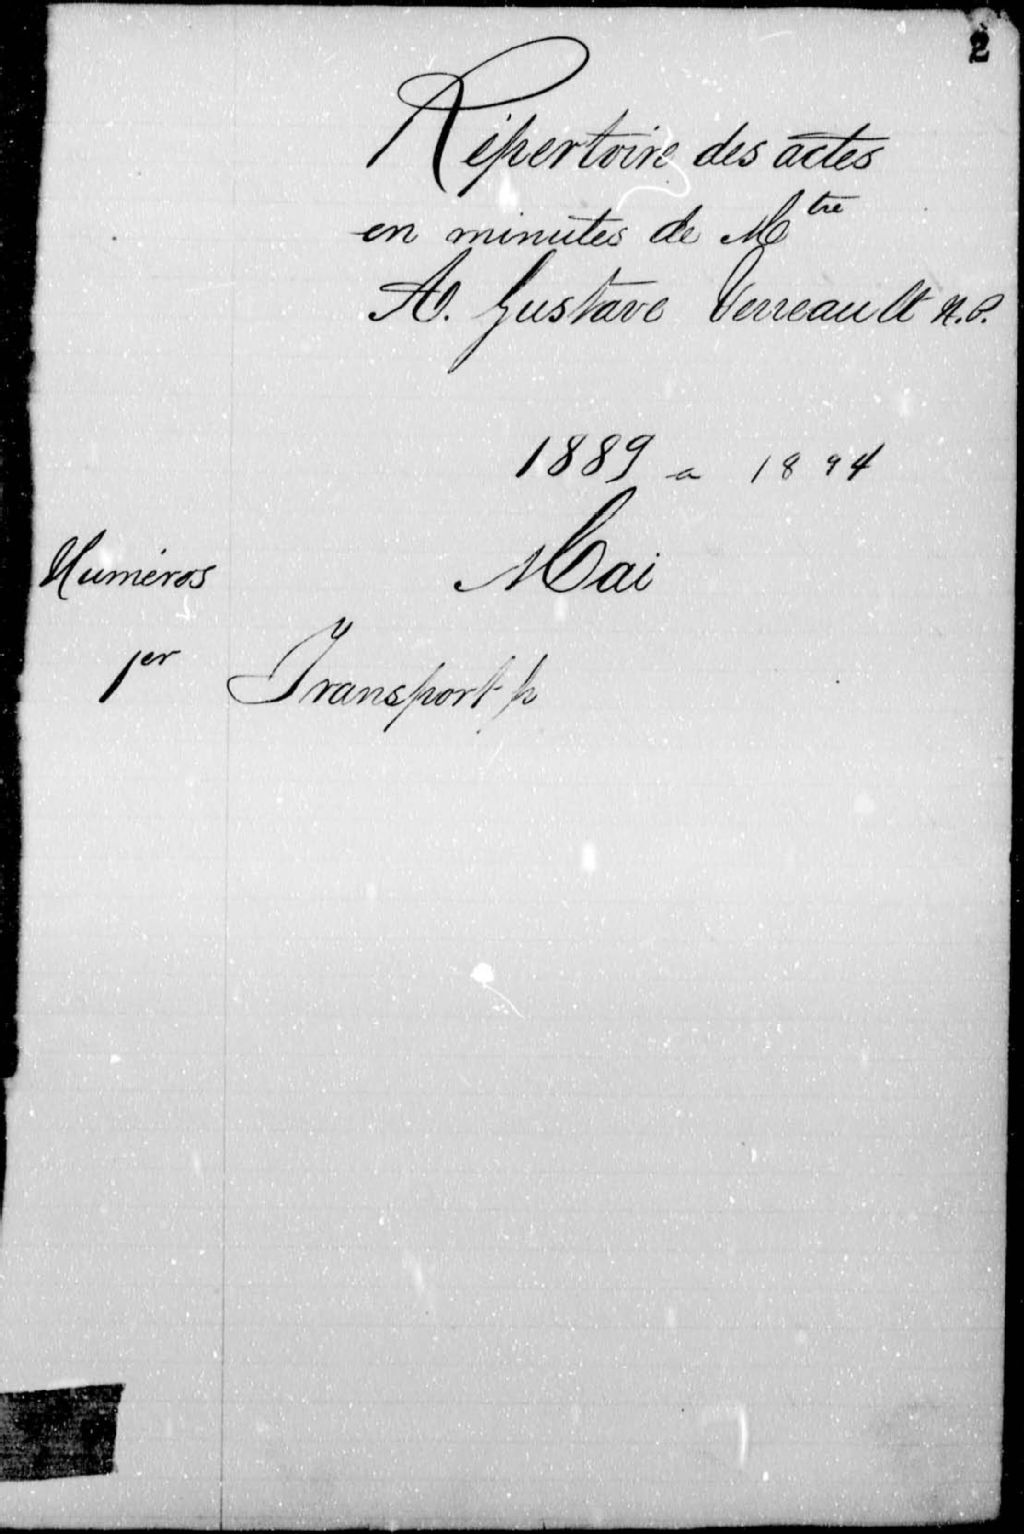 2
Répertoire des actes
en minutes de Mtre
A. Gustave Verreault N.P.
1889 a 1894
Numéros Mai
1er Transport p